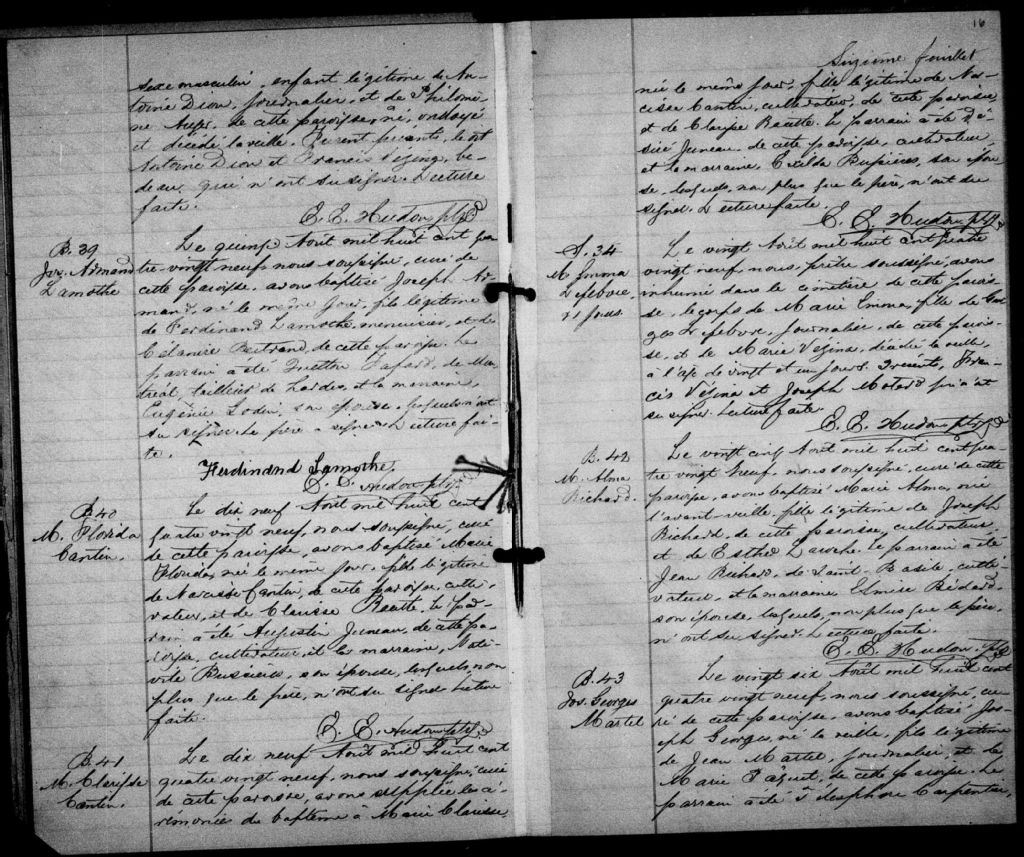 sexe masculin, enfant légitime de An-
toine Dion, journalier, et de Philomè-
ne Auger, de cette paroisse, né, ondoyé
et décédé la veille. Présents, le dit
Antoine Dion et Francis Vézina, be-
deau, qui n'ont su signer. Lecture
faite.
E. E. Hudon ptre
B. 39
Jos. Armand
Lamothe
Le quinze Août mil huit cent qua-
tre-vingt neuf, nous soussigné, curé de
cette paroisse, avons baptisé Joseph Ar-
mand, né le même jour, fils légitime
de Ferdinand Lamothe, menuisier, et de
Célanire Bertrand, de cette paroisse. Le
parrain a été Fafard, de Mon
tréal, tailleur de et la marraine,
Eugénie son épouse, lesquels n'ont
su signer. Le père a signé. Lecture fai-
te.
Ferdinand Lamothe
E. E. Hudon ptre
B 40
M. Florida
Cantin.
Le dix neuf Août mil huit cent
quatre vingt neuf, nous soussigné, curé
de cette paroisse, avons baptisé Marie
Florida, née le même jour, fille légitime
de Narcisse Cantin, de cette paroisse, culti-
vateur, et de Clarisse Beautte. Le par-
rain a été Augustin Juneau, de cette pa-
roisse, cultivateur, et la marraine, Nati-
vité Bussières, son épouse, lesquels, non
plus que le père, n'ont su signer. Lecture
faite.
E. E. Hudon ptre
B. 41
M. Clarisse
Cantin.
Le dix neuf Août mil huit cent
quatre vingt neuf, nous soussigné, curé
de cette paroisse, avons suppléé les cé-
rémonies du baptême à Marie Clarisse,
16
Sizième feuillet
née le même jour, fille légitime de Nar-
cisse Cantin, cultivateur, de cette paroisse
et de Clarisse Beautte. Le parrain a été Dé-
siré Juneau, de cette paroisse, cultivateur
et la marraine, Exilda Bussières, son épou-
se, lesquels, non plus que le père, n'ont su
signer. Lecture faite.
E. E. Hudon, ptre
S. 34
M. Emma
Lefebvre,
21 jours.
Le vingt Août mil huit cent quatre
vingt neuf, nous, prêtre soussigné, avons
inhumé dans le cimetière de cette parois-
se, le corps de Marie Emma, fille de Geor
ges Lefebvre, journalier, de cette parois-
se, et de Marie Vézina, décédée la veille,
à l'âge de vingt et un jours. Présents, Fran-
cis Vézina et Joseph Motard qui n'ont
su signer. Lecture faite.
E. E. Hudon ptre
B. 42
M. Alma
Richard.
Le vingt cinq Août mil huit cent qua-
tre vingt neuf, nous soussigné, curé de cette
paroisse, avons baptisé Marie Alma, née
l'avant-veille, fille légitime de Joseph
Richard, de cette paroisse, cultivateur,
et de Esther Laroche. Le parrain a été
Jean Richard, de Saint-Basile, culti-
vateur, et la marraine Elmire Bédard,
son épouse, lesquels, non plus que le père,
n'ont su signer. Lecture faite.
E. E. Hudon, ptre
B. 43
Jos. Georges
Martel
Le vingt six Août mil huit cent
quatre vingt neuf, nous soussigné, cu-
ré de cette paroisse, avons baptisé Jos-
eph Georges, né la veille, fils légitime
de Jean Martel, journalier, et de
Marie Paquet, de cette paroisse. Le
parrain a été Télesphore Carpentier,